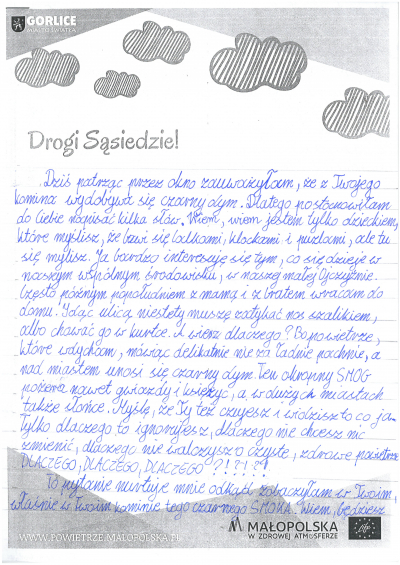 GORLICE
MIASTO ŚWIATŁA
Drogi Sąsiedzie!
Dziś patrząc przez okno zauważyłam, że z Twojego
komina wydobywa się czarny dym. Dlatego postanowiłam
do Ciebie napisać kilka słów. Wiem, wiem jestem tylko dzieckiem,
które myślisz, że bawi się lalkami, klockami i puzzlami, ale tu
się mylisz. Ja bardzo interesuję się tym, co się dzieje w
naszym wspólnym środowisku, w naszej małej Ojczyźnie.
Często późnym popołudniem z mamą i z bratem wracam do
domu. Idąc ulicą niestety muszę zatykać nos szalikiem,
albo chować go w kurtce. A wiesz dlaczego? Bo powietrze,
które wdycham, mówiąc delikatnie nie za ładnie pachnie, a
nad miastem unosi się czarny dym. Ten okropny SMOG
pożera nawet gwiazdy i księżyc, a w dużych miastach
także słońce. Myślę, że Ty też czujesz i widzisz to co ja.
Tylko dlaczego to ignorujesz, dlaczego nie chcesz nic
zmienić, dlaczego nie walczysz o czyste, zdrowe powietrze
DLACZEGO, DLACZEGO, DLACZEGO ?!?!?!
To pytanie nurtuje mnie odkąd zobaczyłam w Twoim,
właśnie w Twoim kominie tego czarnego SMOKA. Wiem, będziesz
WWW.POWIETRZE.MALOPOLSKA.PL
MAŁOPOLSKA
W ZDROWEJ ATMOSFERZE